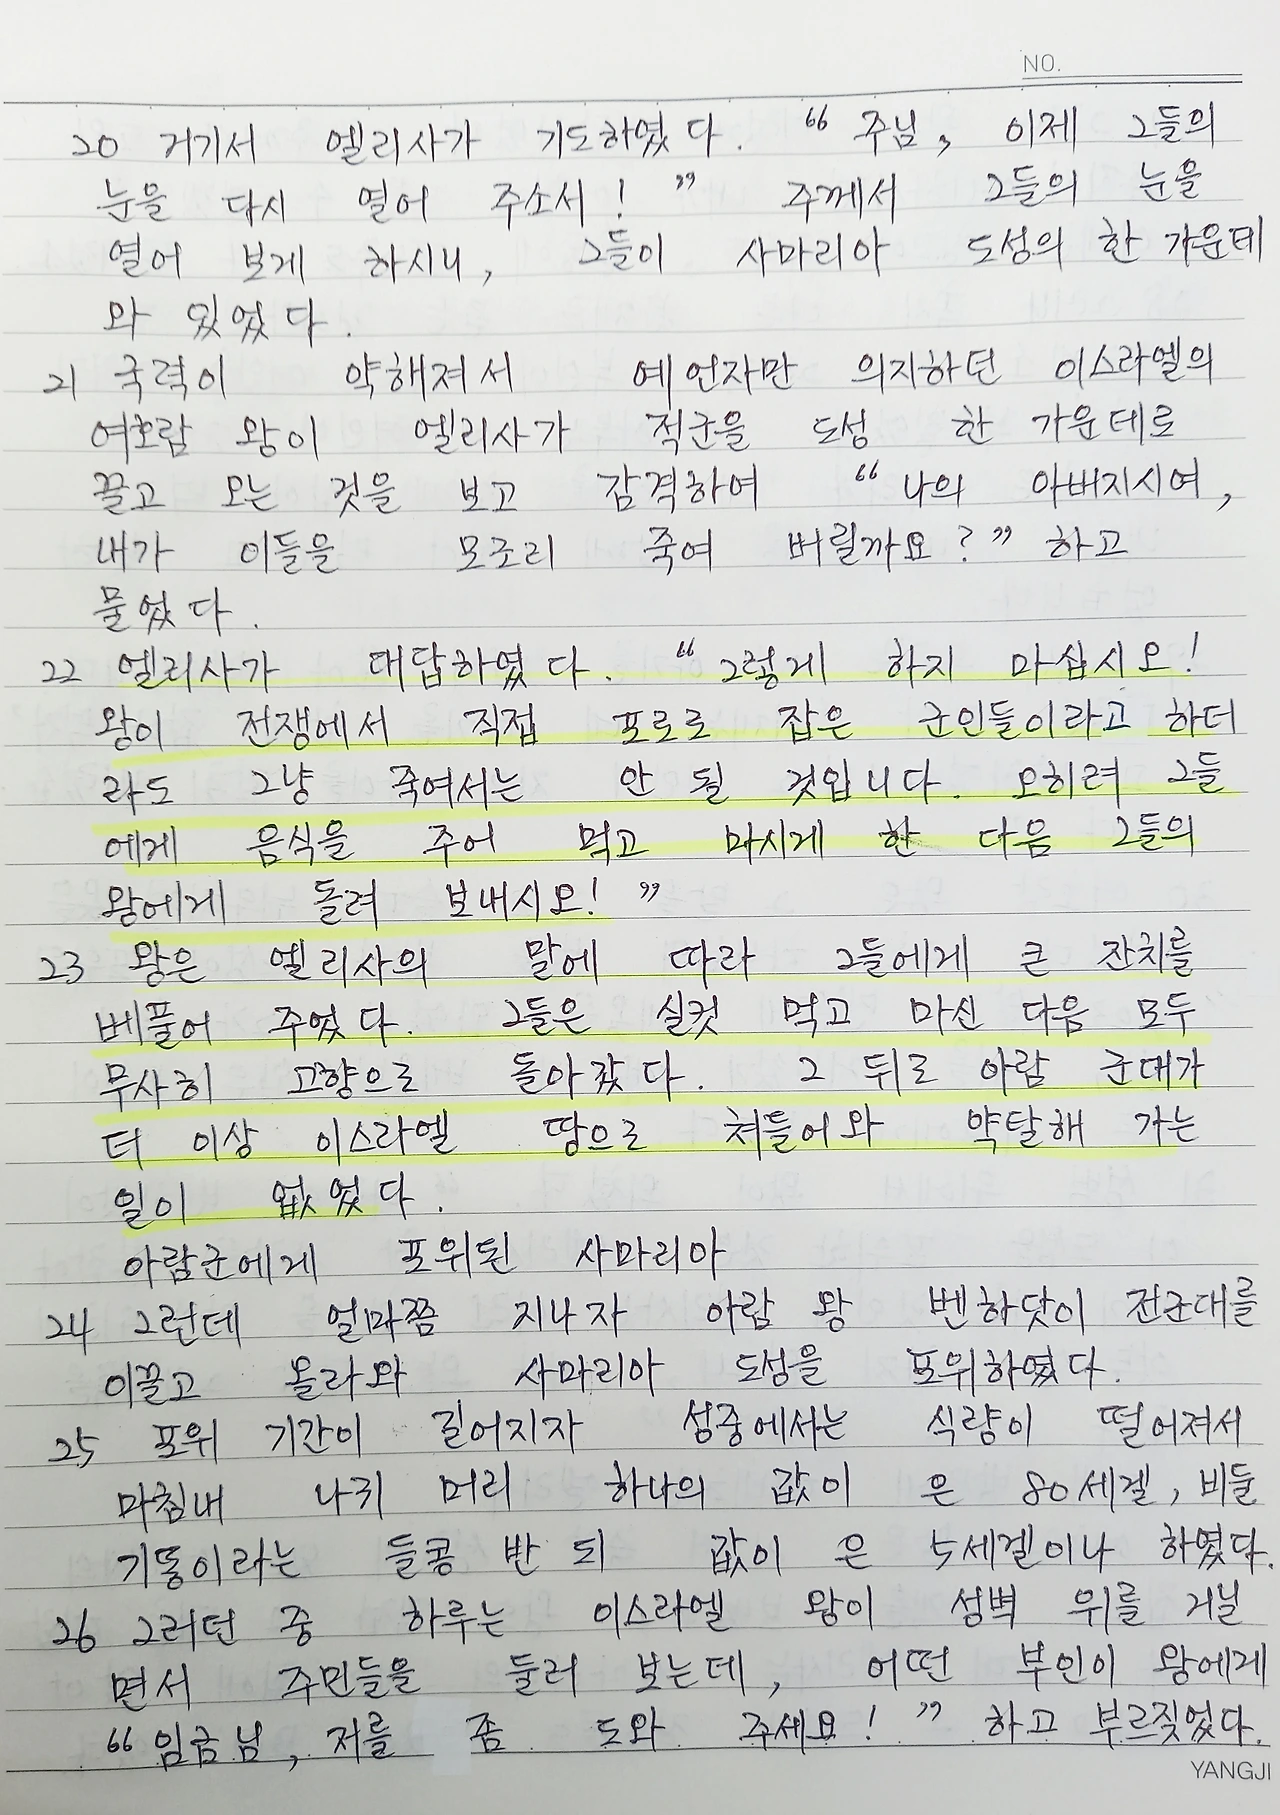 NO.
20 거기서 엘리사가 기도하였다. “주님, 이제 그들의
눈을 다시 열어 주소서!” 주께서 그들의 눈을
열어 보게 하시니, 그들이 사마리아 도성의 한 가운데
와 있었다.
21 국력이 약해져서 예언자만 의지하던 이스라엘의
여호람 왕이 엘리사가 적군을 도성 한 가운데로
끌고 오는 것을 보고 감격하여 “나의 아버지시여,
내가 이들을 모조리 죽여 버릴까요?” 하고
물었다.
22 엘리사가 대답하였다. “그렇게 하지 마십시오!
왕이 전쟁에서 직접 포로로 잡은 군인들이라고 하더
라도 그냥 죽여서는 안 될 것입니다. 오히려 그들
에게 음식을 주어 먹고 마시게 한 다음 그들의
왕에게 돌려 보내시오!”
23 왕은 엘리사의 말에 따라 그들에게 큰 잔치를
베풀어 주었다. 그들은 실컷 먹고 마신 다음 모두
무사히 고향으로 돌아갔다. 그 뒤로 아람 군대가
더 이상 이스라엘 땅으로 쳐들어와 약탈해 가는
일이 없었다.
아람군에게 포위된 사마리아
24 그런데 얼마쯤 지나자 아람 왕 벤하닷이 전군대를
이끌고 올라와 사마리아 도성을 포위하였다.
25 포위 기간이 길어지자 성중에서는 식량이 떨어져서
마침내 나귀 머리 하나의 값이 은 80세겔, 비둘
기똥이라는 들콩 반 되 값이 은 5세겔이나 하였다.
26 그러던 중 하루는 이스라엘 왕이 성벽 위를 거닐
면서 주민들을 둘러 보는데, 어떤 부인이 왕에게
“임금님, 저를 좀 도와 주세요!” 하고 부르짖었다.
YANGJI